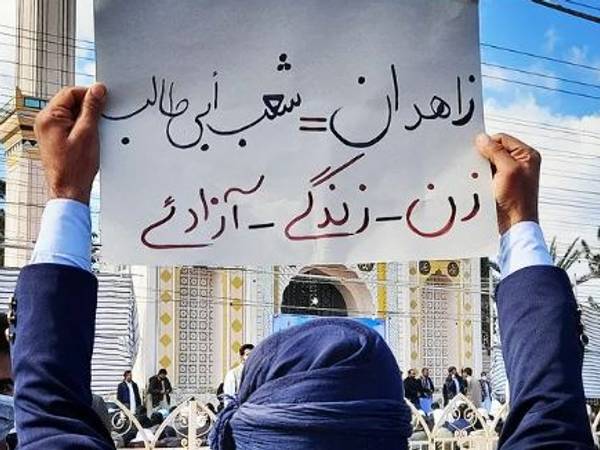 زاهدان = شعب أبي طالب
زن - زندگے - آزادئے